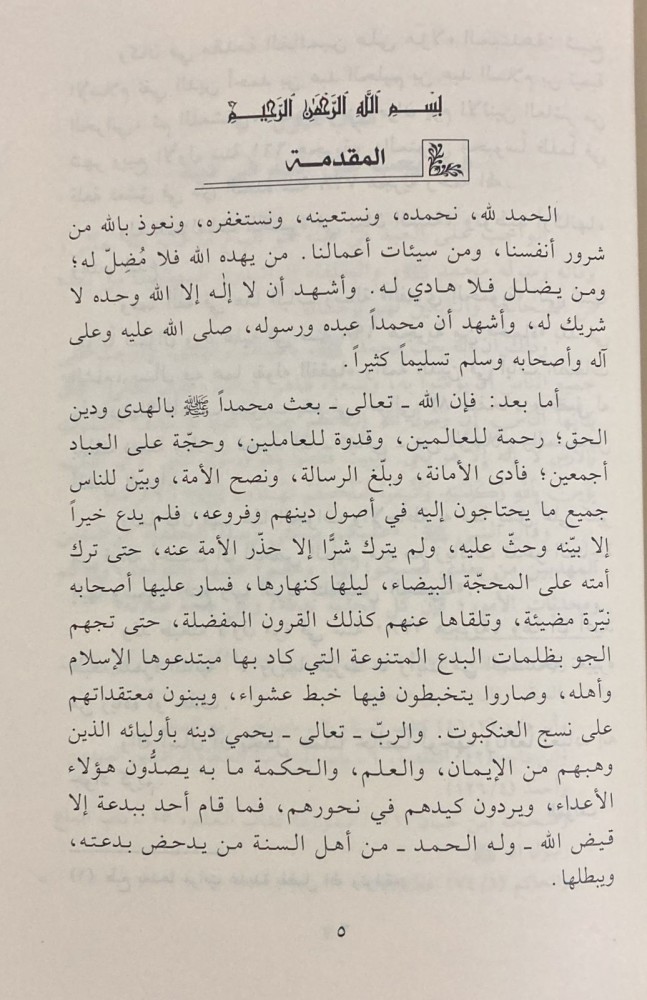 بسم الله الرحمن الرحيم
المقدمة
الحمد لله، نحمده، ونستعينه، ونستغفره، ونعوذ بالله من
شرور أنفسنا، ومن سيئات أعمالنا. من يهده الله فلا مُضِلّ له؛
ومن يضلل فلا هادي له. وأشهد أن لا إلٰه إلا الله وحده لا
شريك له، وأشهد أن محمداً عبده ورسوله، صلى الله عليه وعلى
آله وأصحابه وسلم تسليماً كثيراً.
أما بعد: فإن الله ـ تعالى ـ بعث محمداً ﷺ بالهدى ودين
الحق؛ رحمة للعالمين، وقدوة للعاملين، وحجّة على العباد
أجمعين؛ فأدى الأمانة، وبلّغ الرسالة، ونصح الأمة، وبيّن للناس
جميع ما يحتاجون إليه في أصول دينهم وفروعه، فلم يدع خيراً
إلا بيّنه وحثّ عليه، ولم يترك شرًّا إلا حذّر الأمة عنه، حتى ترك
أمته على المحجّة البيضاء، ليلها كنهارها، فسار عليها أصحابه
نيّرة مضيئة، وتلقاها عنهم كذلك القرون المفضلة، حتى تجهم
الجو بظلمات البدع المتنوعة التي كاد بها مبتدعوها الإسلام
وأهله، وصاروا يتخبطون فيها خبط عشواء، ويبنون معتقداتهم
على نسج العنكبوت. والربّ ـ تعالى ـ يحمي دينه بأوليائه الذين
وهبهم من الإيمان، والعلم، والحكمة ما به يصدُّون هؤلاء
الأعداء، ويردون كيدهم في نحورهم، فما قام أحد ببدعة إلا
قيض الله ـ وله الحمد ـ من أهل السنة من يدحض بدعته،
ويبطلها.
٥